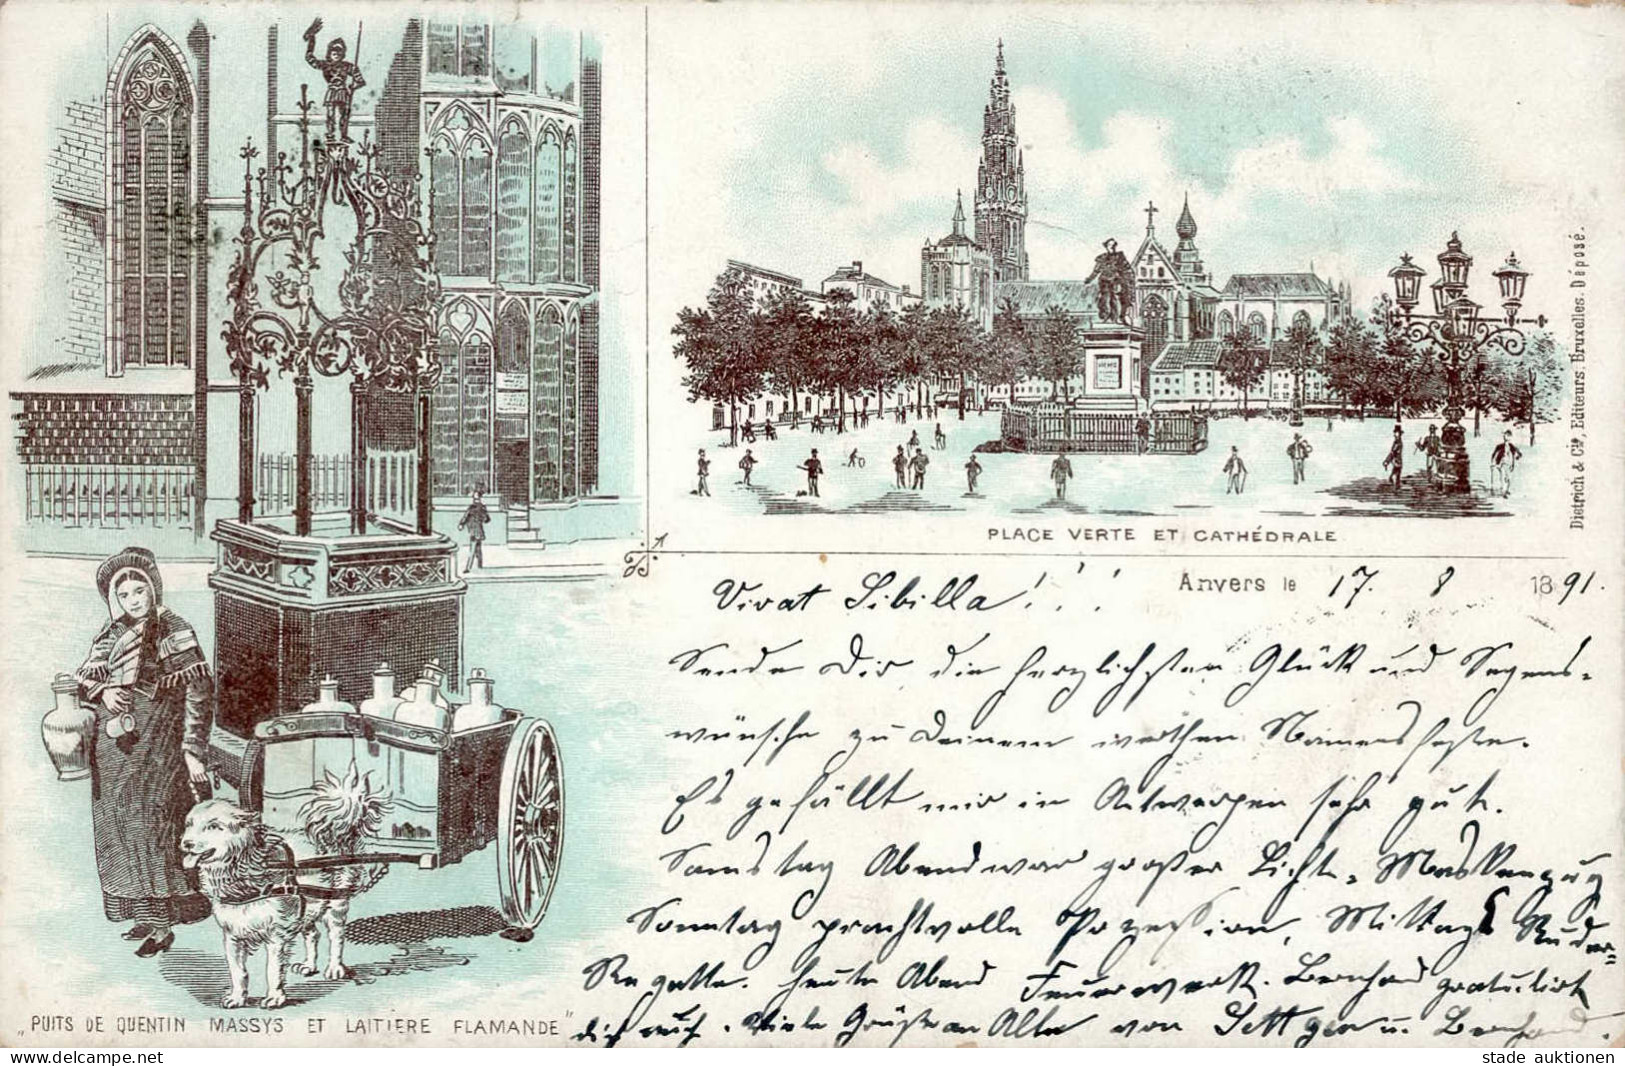 PLACE VERTE ET CATHÉDRALE
Dietrich & Cie, Editeurs. Bruxelles. Déposé.
Anvers le 17. 8 1891.
Vivat Sibilla!!!
Sende Dir die herzlichsten Glück und Segens-
wünsche zu Deinem werthen Namensfeste.
Es gefällt mir in Antwerpen sehr gut.
Samstag Abend war großer Licht-Maskenzug
Sonntag prachtvolle Prozession, Mittags Ruder-
Regatta. heute Abend Feuerwerk. Bernhard gratulirt
dich auch. Viele Grüße an Alle von u. Bernhard.
„PUITS DE QUENTIN MASSYS ET LAITIERE FLAMANDE"
stade auktionen
www.delcampe.net